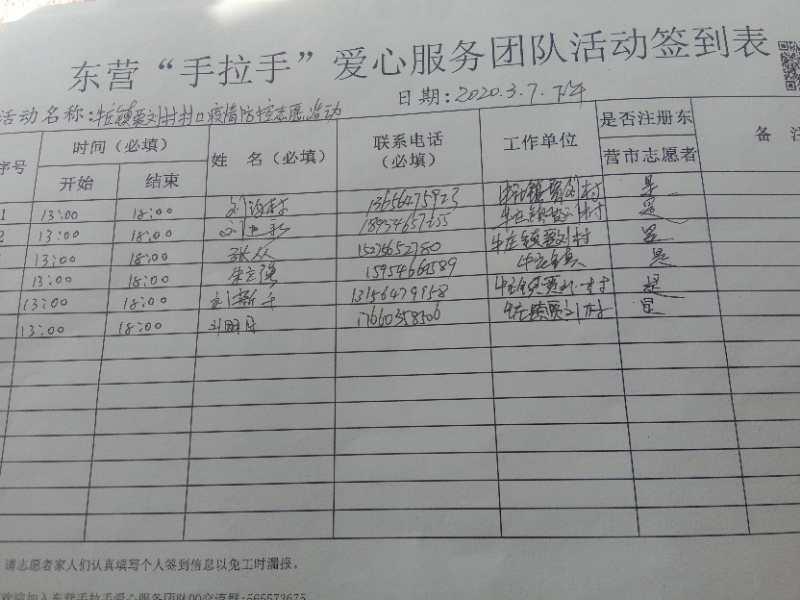 东营“手拉手”爱心服务团队活动签到表
活动名称：牛庄镇贾刘村村口疫情防控志愿活动 日期：2020.3.7.下午
序号 时间（必填） 姓 名（必填） 联系电话（必填） 工作单位 是否注册东营市志愿者 备
开始 结束
1 13:00 18:00 13656475923 牛庄镇贾刘村 是
2 13:00 18:00 18954657255 牛庄镇贾刘村 是
13:00 18:00 15275652780 牛庄镇贾刘村 是
13:00 18:00 15954664589 牛庄镇 是
13:00 18:00 刘新 13156479958 牛庄镇贾刘村 是
13:00 18:00 刘明月 17660358506 牛庄镇贾刘村 是
请志愿者家人们认真填写个人签到信息以免工时漏报。
欢迎加入东营手拉手爱心服务团队QQ交流群:565573675